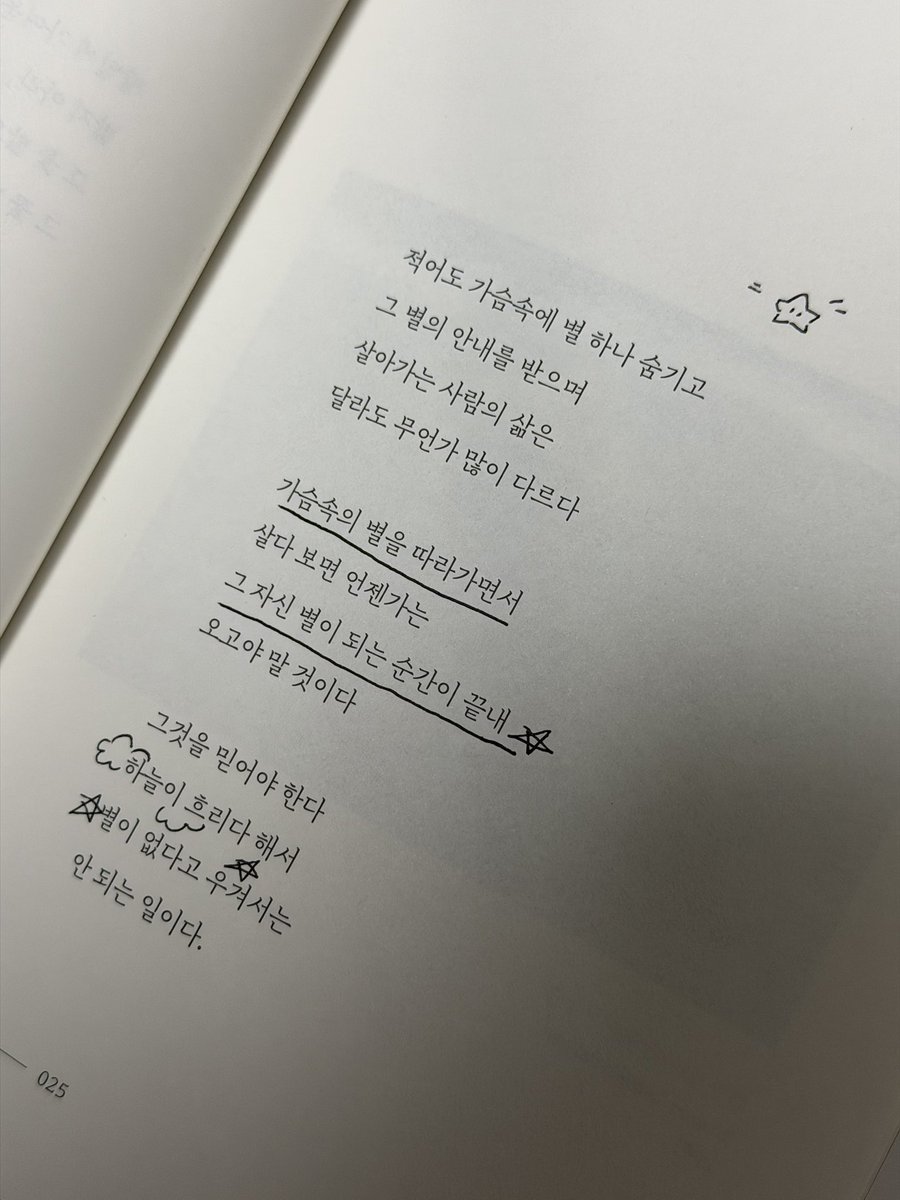 적어도 가슴속에 별 하나 숨기고
그 별의 안내를 받으며
살아가는 사람의 삶은
달라도 무언가 많이 다르다
가슴속의 별을 따라가면서
살다 보면 언젠가는
그 자신 별이 되는 순간이 끝내
오고야 말 것이다
그것을 믿어야 한다
하늘이 흐리다 해서
별이 없다고 우겨서는
안 되는 일이다.
025